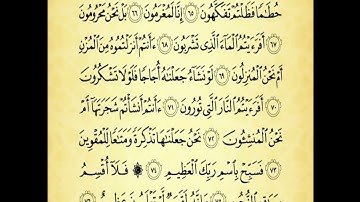 حُطَـٰمًا فَظَلْتُمْ تَفَكَّهُونَ ﴿٦٥﴾ إِنَّا لَمُغْرَمُونَ ﴿٦٦﴾ بَلْ نَحْنُ مَحْرُومُونَ
﴿٦٧﴾ أَفَرَءَيْتُمُ ٱلْمَآءَ ٱلَّذِى تَشْرَبُونَ ﴿٦٨﴾ ءَأَنتُمْ أَنزَلْتُمُوهُ مِنَ ٱلْمُزْنِ
أَمْ نَحْنُ ٱلْمُنزِلُونَ ﴿٦٩﴾ لَوْ نَشَآءُ جَعَلْنَـٰهُ أُجَاجًا فَلَوْلَا تَشْكُرُونَ
﴿٧٠﴾ أَفَرَءَيْتُمُ ٱلنَّارَ ٱلَّتِى تُورُونَ ﴿٧١﴾ ءَأَنتُمْ أَنشَأْتُمْ شَجَرَتَهَآ أَمْ
نَحْنُ ٱلْمُنشِـُٔونَ ﴿٧٢﴾ نَحْنُ جَعَلْنَـٰهَا تَذْكِرَةً وَمَتَـٰعًا لِّلْمُقْوِينَ
﴿٧٣﴾ فَسَبِّحْ بِٱسْمِ رَبِّكَ ٱلْعَظِيمِ ﴿٧٤﴾ ۞ فَلَآ أُقْسِمُ